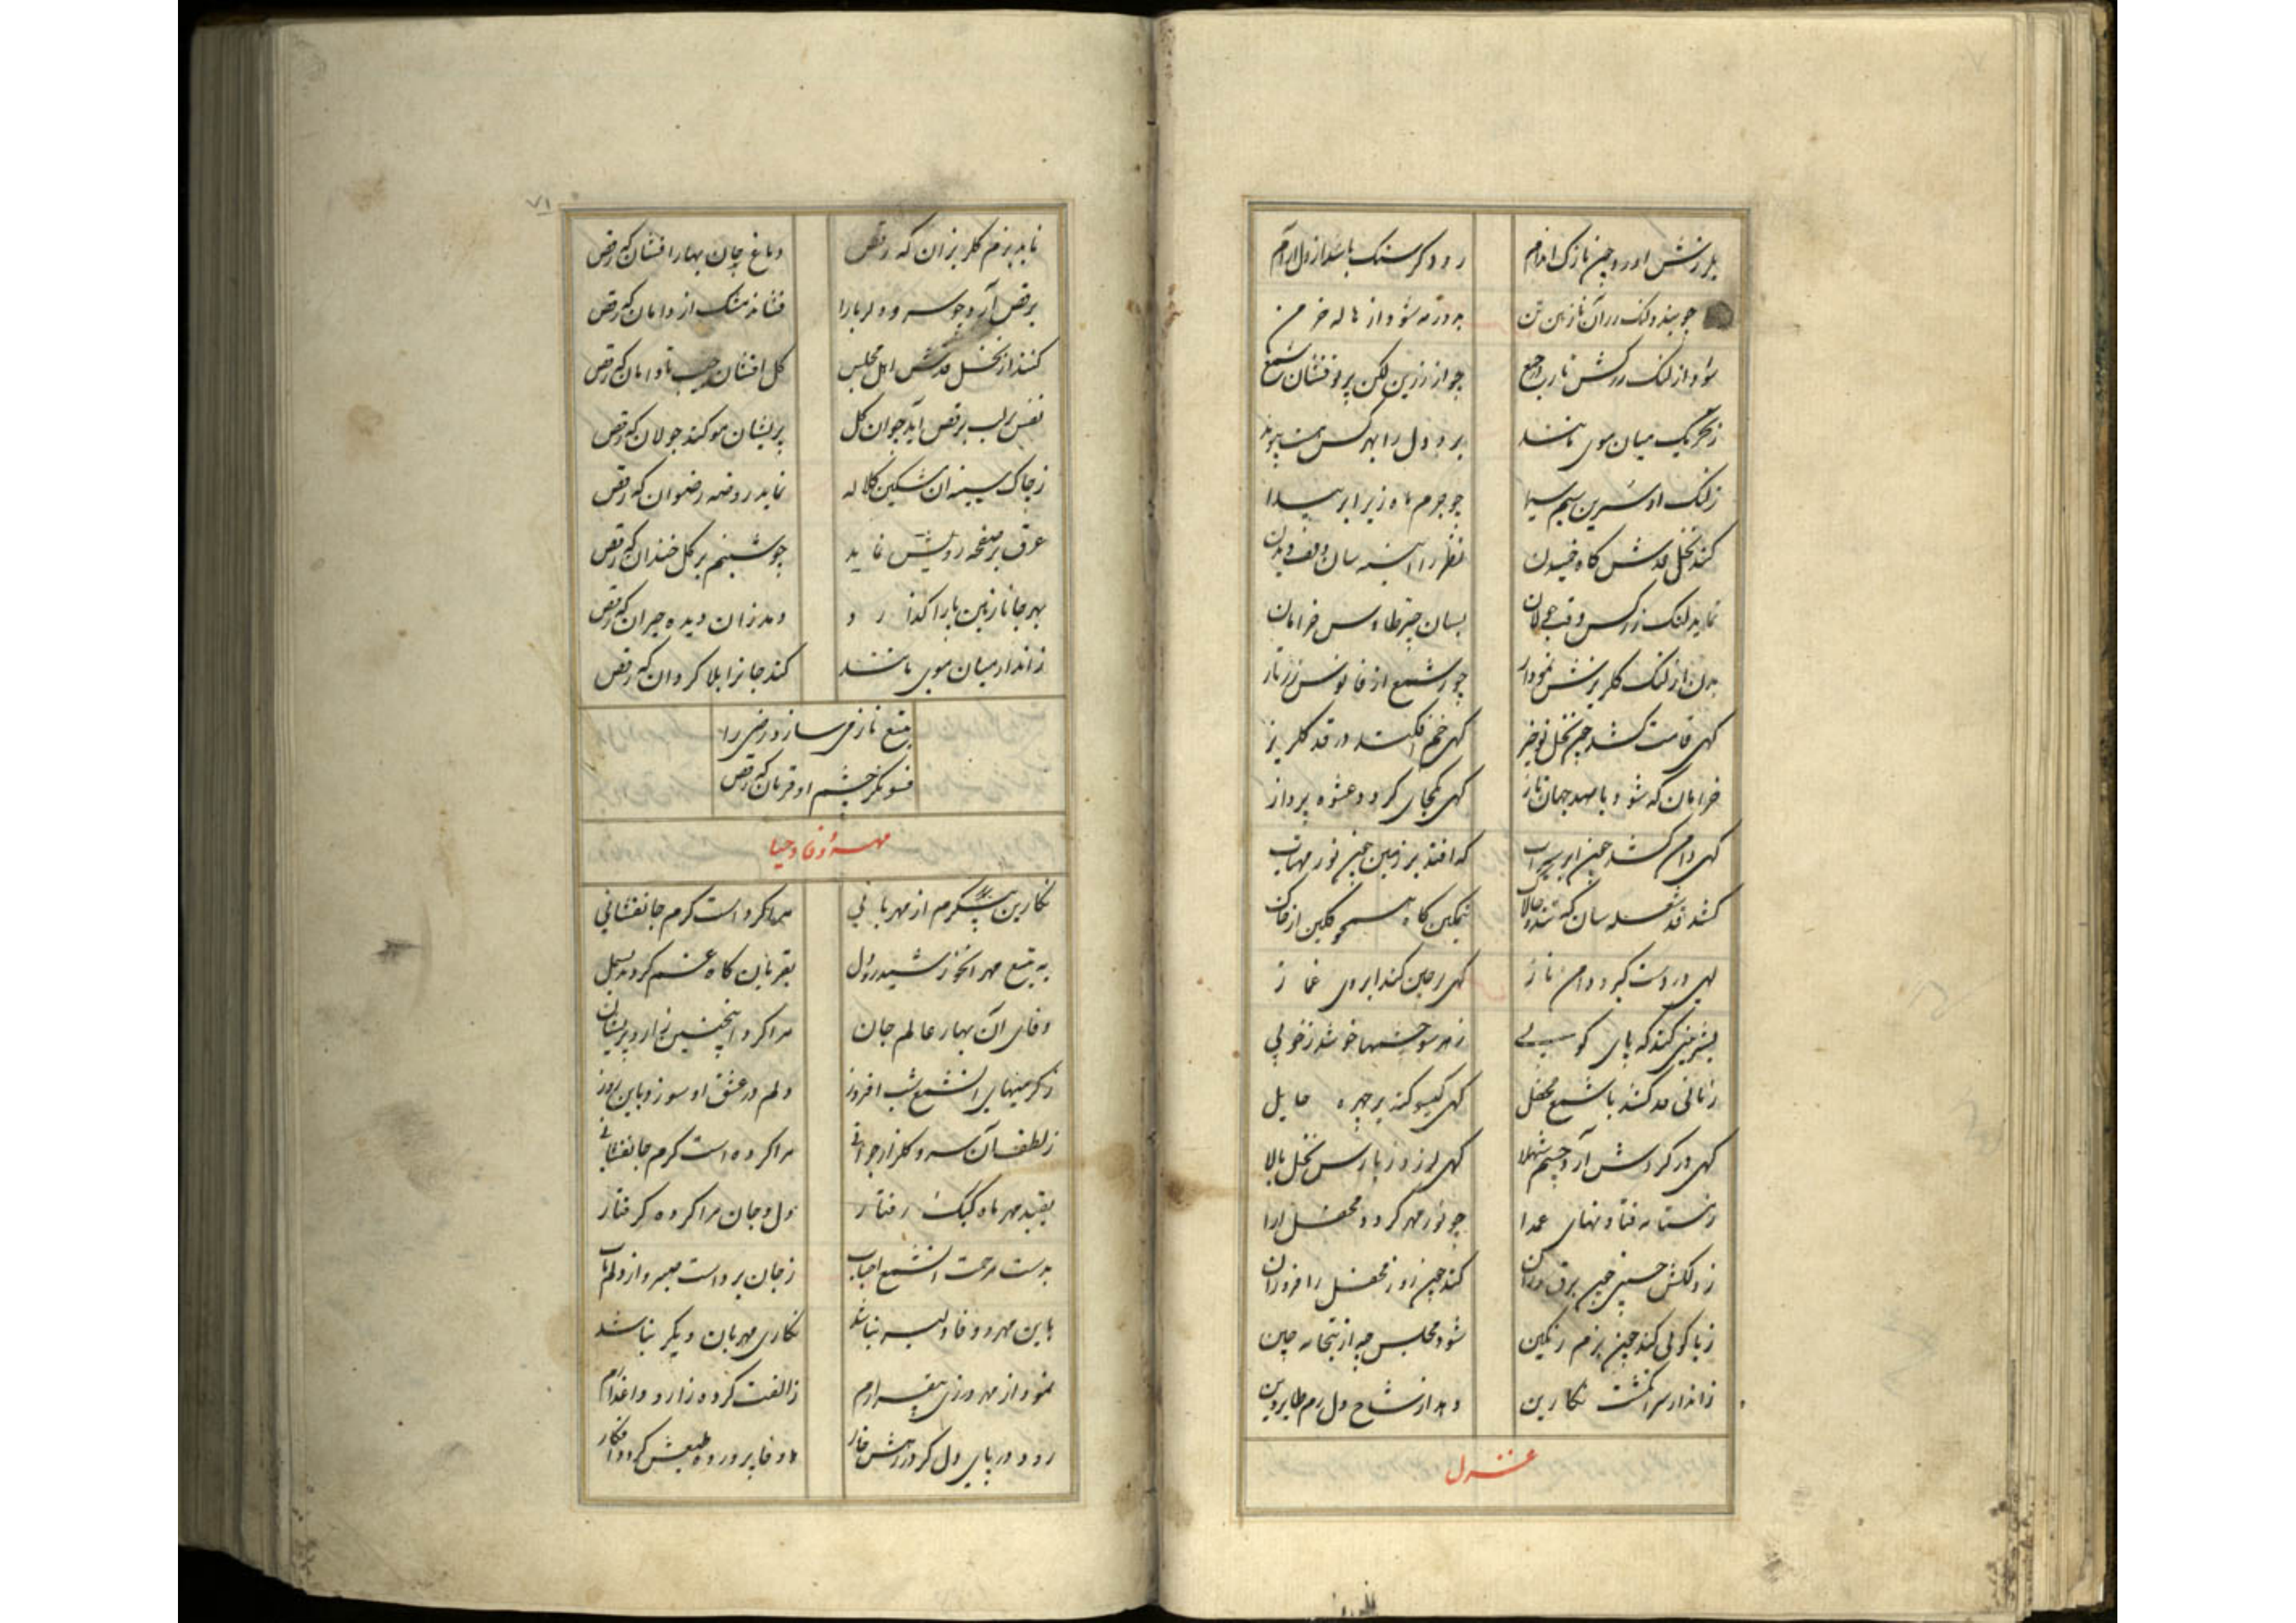 بلرزش آورد چین نازک اندام
رود گر سنگ باشد از دل آرام
چو بیند لنگ در آن نازنین تن
بدور مه شود از هاله خرمن
شود از لنگ زرکش تارب جمع
چو از زرین لگن پرتو فشان شمع
ز تحریک میان موی مانند
برد دل را بهر کس هست پیوند
ز لنگ او سرین سیم سیما
چو جرم ماه زیر ابر پیدا
کند نخل قدش گاه خمیدن
نظر را آینه سان وقف دیدن
نماید لنگ زرکش وقت جولان
بسان چتر طاوس خرامان
بدن از لنگ گلریزش نمودار
چو شمع از فانوس زرتار
گهی قامت کشد چون نخل نوخیز
گهی خم افکند در قد گلریز
خرامان گه شود با صد جهان ناز
گهی کمجای گردد عشوه پرداز
گهی دامن کشد چون ابر سیراب
که افتد بر زمین چون نور مهتاب
کشد قد شعله سان گه تند و چالاک
گهی در دست گیرد دامن ناز
گهی پرچین کند ابروی غماز
بشیرینی کند گه پای کوبی
ز هر سو چشمها جوشد ز خوبی
زمانی قد کشد با شمع محفل
گهی گیسو کند بر چهره حایل
گهی در گردش آرد چشم شهلا
گهی لرزد ز بارش نخل بالا
چو نور مهر گردد محفل آرا
کند چون روز محفل را فروزان
ز پاکوبی کند چون بزم رنگین
شود مجلس به از بتخانه چین
ز انداز سرانگشت نگارین
دهد از شاخ دل رم طایر دین
غزل
۷۱
نماید بزم گلریزان گه رقص
دماغ جان بهار افشان گه رقص
برقص آرد چو سرو دلربا را
فشاند مشک از دامان گه رقص
کنند از نخل قدش اهل مجلس
گل افشان جیب تا دامان گه رقص
نفس بر لب برقص آید چو آن گل
پریشان مو کند جولان گه رقص
ز چاک سینه آن مشکین کلاله
نماید روضه رضوان گه رقص
عرق بر صفحه رویش نماید
چو شبنم بر گل خندان گه رقص
بهر جا نازنین پا را گذارد
دمد زان دیده حیران گه رقص
ز انداز میان موی مانند
کند جانرا بلا گردان گه رقص
بتیغ ناز می سازد رضی را
فسونگر چشم او قربان گه رقص
مهر و وفا و حیا
نگارین پیکرم از مهربانی
مرا کرد است گرم جانفشانی
به تیغ مهر آن خورشید رو دل
بقربان گاه غم کردند بسمل
وفای آن بهار عالم جان
مرا کرد اینچنین زار و پریشان
ز گرمیهای آن شمع شب افروز
دلم در عشق او سوزد باین روز
ز لطف آن سرو گلزار جوانی
مرا کرده است گرم جانفشانی
بقید مهر ماه کبک رفتار
دل و جان مرا کرده گرفتار
بدست مرحمت آن شمع احباب
ز جان برداست صبر و از دلم تاب
باین مهر و وفا دلبر نباشد
نگاری مهربان دیگر نباشد
نمود از مهر ورزی بیقرارم
ز الفت کرده زار و داغدارم
رود در پای دل گر در رهش خار